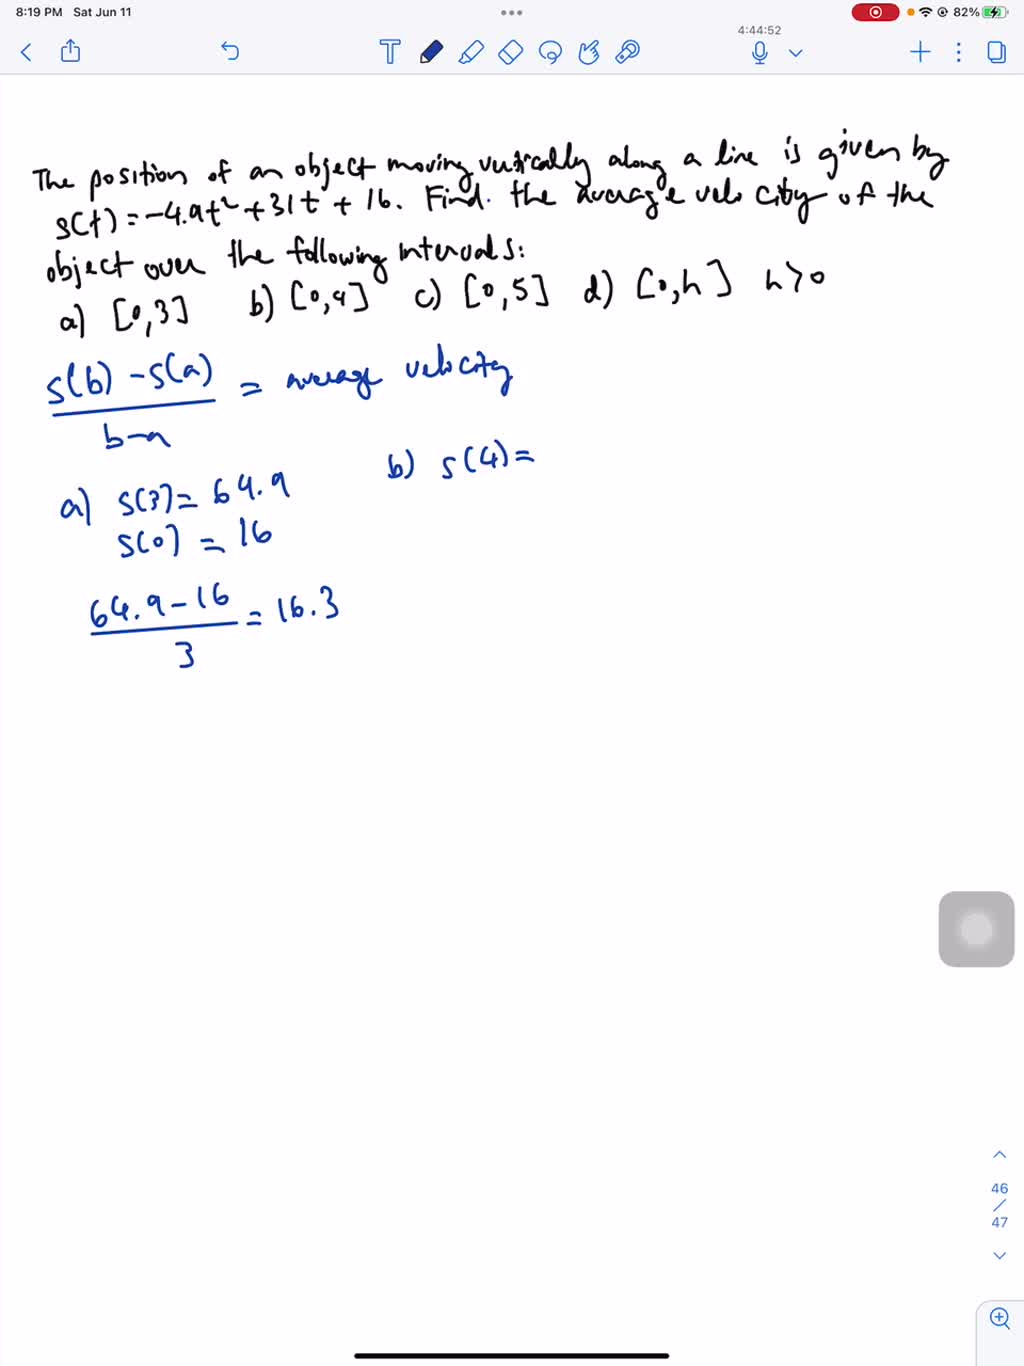 8:19 PM Sat Jun 11
82%
4:44:52
The position of an object moving vertically along a line is given by
s(t) = -4.9t² + 31t + 16. Find the average velocity of the
object over the following intervals:
a) [0,3] b) [0,4] c) [0,5] d) [0,h] h>0
s(b) - s(a)
= average velocity
b-a
a) s(3) = 64.9 b) s(4) =
s(0) = 16
64.9 - 16
= 16.3
3
46
/
47